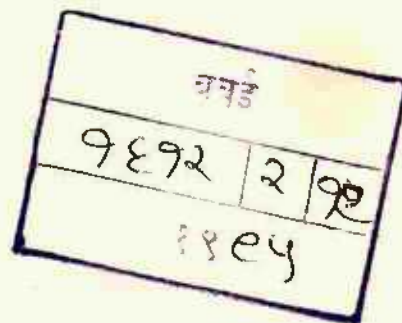 बबई
१६१२ २ १९
१९९५